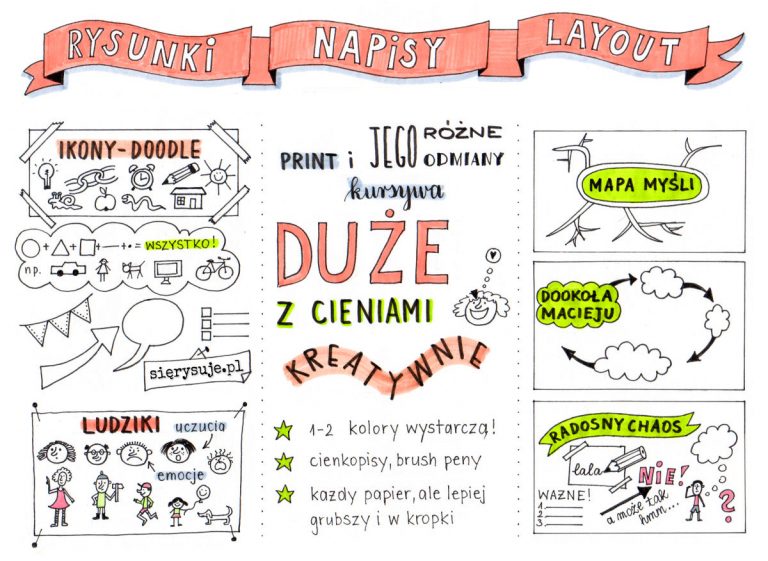 RYSUNKI NAPISY LAYOUT
IKONY-DOODLE
WSZYSTKO!
np.
sięrysuje.pl
LUDZIKI
uczucia
emocje
PRINT i JEGO RÓŻNE ODMIANY
kursywa
DUŻE
Z CIENIAMI
KREATYWNIE
1-2 kolory wystarczą!
cienkopisy, brush peny
każdy papier, ale lepiej
grubszy i w kropki
MAPA MYŚLI
DOOKOŁA
MACIEJU
RADOSNY CHAOS
lala
NIE!
WAŻNE!
1.
2.
3.
a może tak
hmm...
?